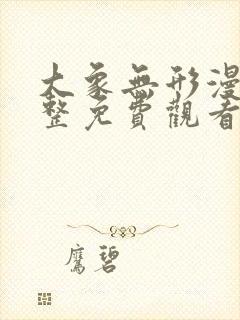 大象無形漫
整免費觀看
鷹碧